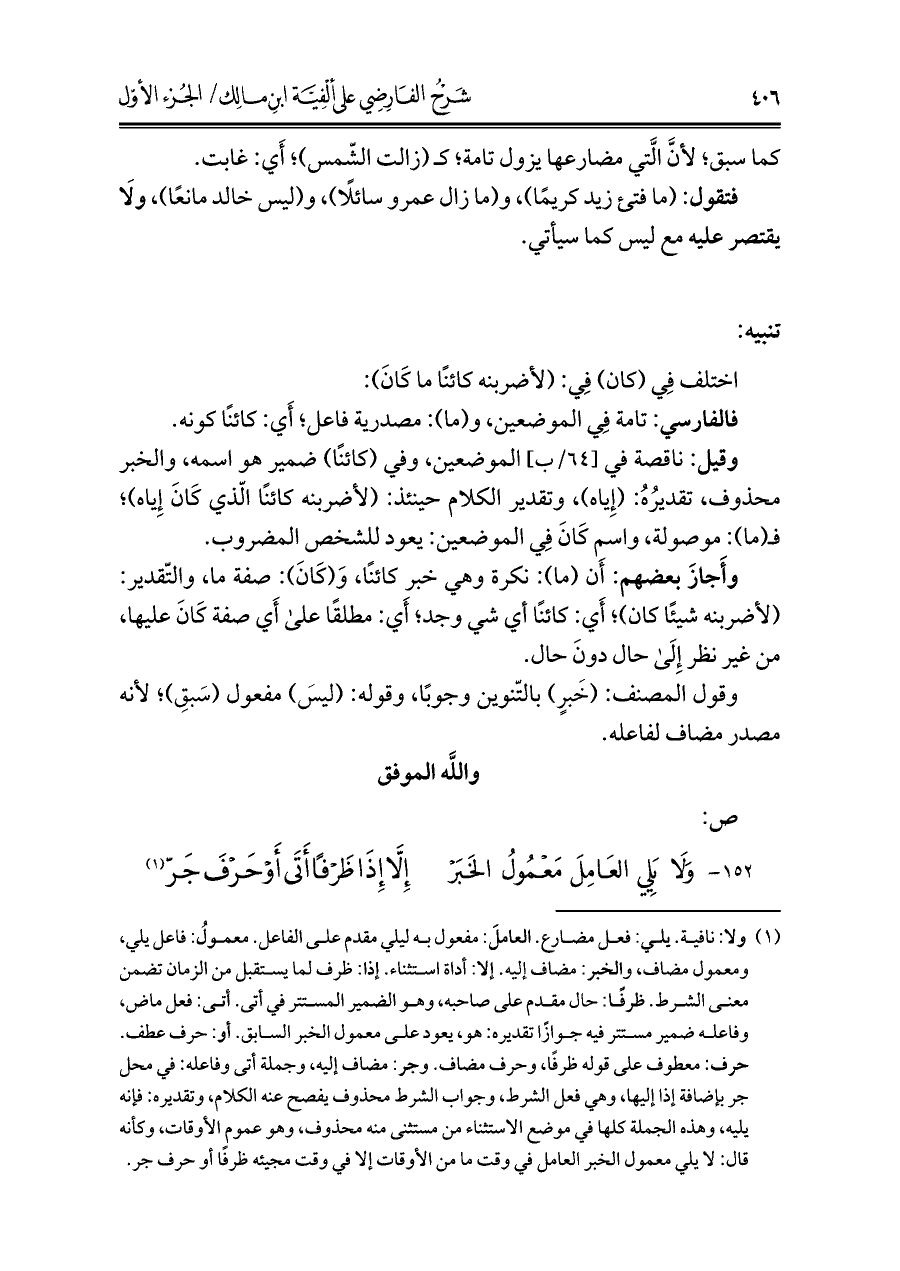 ٤٠٦ شَرْحُ الفَارِضِي على ألْفِيَّة ابنِ مالِك/ الجُزء الأوّل
كما سبق؛ لأنَّ الَّتي مضارعها يزول تامة؛ كـ (زالت الشّمس)؛ أَي: غابت.
فتقول: (ما فتئ زيد كريمًا)، و(ما زال عمرو سائلًا)، و(ليس خالد مانعًا)، ولَا
يقتصر عليه مع ليس كما سيأتي.
تنبيه:
اختلف فِي (كان) فِي: (لأضربنه كائنًا ما كَانَ):
فالفارسي: تامة فِي الموضعين، و(ما): مصدرية فاعل؛ أَي: كائنًا كونه.
وقيل: ناقصة في [٦٤/ ب] الموضعين، وفي (كائنًا) ضمير هو اسمه، والخبر
محذوف، تقديرُهُ: (إِياه)، وتقدير الكلام حينئذ: (لأضربنه كائنًا الّذي كَانَ إِياه)؛
فـ(ما): موصولة، واسم كَانَ فِي الموضعين: يعود للشخص المضروب.
وأَجازَ بعضهم: أَن (ما): نكرة وهي خبر كائنًا، وَ(كَانَ): صفة ما، والتّقدير:
(لأضربنه شيئًا كان)؛ أَي: كائنًا أي شي وجد؛ أَي: مطلقًا علىٰ أَي صفة كَانَ عليها،
من غير نظر إِلَىٰ حال دونَ حال.
وقول المصنف: (خَبرٍ) بالتّنوين وجوبًا، وقوله: (ليسَ) مفعول (سَبقِ)؛ لأنه
مصدر مضاف لفاعله.
واللَّه الموفق
ص:
١٥٢- وَلَا يَلِي العَامِلَ مَعْمُولُ الخَبَرْ إِلَّا إِذَا ظَرْفًا أَتَى أَوْ حَرْفَ جَرّ(١)
(١) ولا: نافية. يلي: فعل مضارع. العاملَ: مفعول به ليلي مقدم على الفاعل. معمولُ: فاعل يلي،
ومعمول مضاف، والخبر: مضاف إليه. إلا: أداة استثناء. إذا: ظرف لما يستقبل من الزمان تضمن
معنى الشرط. ظرفًا: حال مقدم على صاحبه، وهو الضمير المستتر في أتى. أتى: فعل ماض،
وفاعله ضمير مستتر فيه جوازًا تقديره: هو، يعود على معمول الخبر السابق. أو: حرف عطف.
حرف: معطوف على قوله ظرفًا، وحرف مضاف. وجر: مضاف إليه، وجملة أتى وفاعله: في محل
جر بإضافة إذا إليها، وهي فعل الشرط، وجواب الشرط محذوف يفصح عنه الكلام، وتقديره: فإنه
يليه، وهذه الجملة كلها في موضع الاستثناء من مستثنى منه محذوف، وهو عموم الأوقات، وكأنه
قال: لا يلي معمول الخبر العامل في وقت ما من الأوقات إلا في وقت مجيئه ظرفًا أو حرف جر.